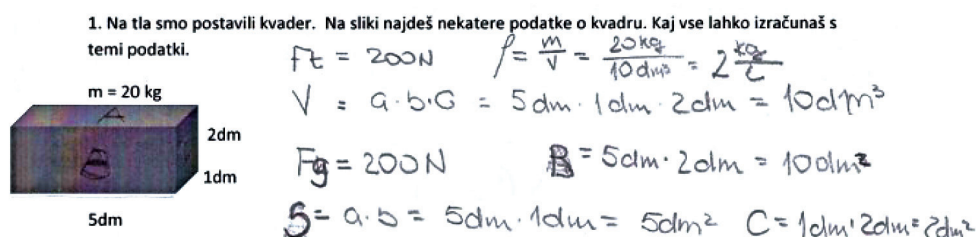 1. Na tla smo postavili kvader. Na sliki najdeš nekatere podatke o kvadru. Kaj vse lahko izračunaš s
temi podatki.
Ft = 200N ρ = m/V = 20kg/10dm³ = 2 kg/L
m = 20 kg
V = a·b·c = 5dm · 1dm · 2dm = 10dm³
A
2dm
B
1dm
Fg = 200N B = 5dm · 2dm = 10dm²
5dm
S = a·b = 5dm · 1dm = 5dm² C = 1dm · 2dm = 2dm²